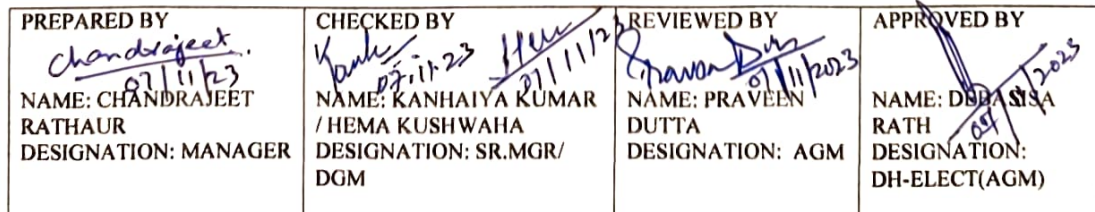 PREPARED BY
Chandrajeet.
07/11/23
NAME: CHANDRAJEET
RATHAUR
DESIGNATION: MANAGER
CHECKED BY
07.11.23
07/11/23
NAME: KANHAIYA KUMAR
/ HEMA KUSHWAHA
DESIGNATION: SR.MGR/
DGM
REVIEWED BY
07/11/2023
NAME: PRAVEEN
DUTTA
DESIGNATION: AGM
APPROVED BY
NAME: DEBASISA
RATH
DESIGNATION:
DH-ELECT(AGM)